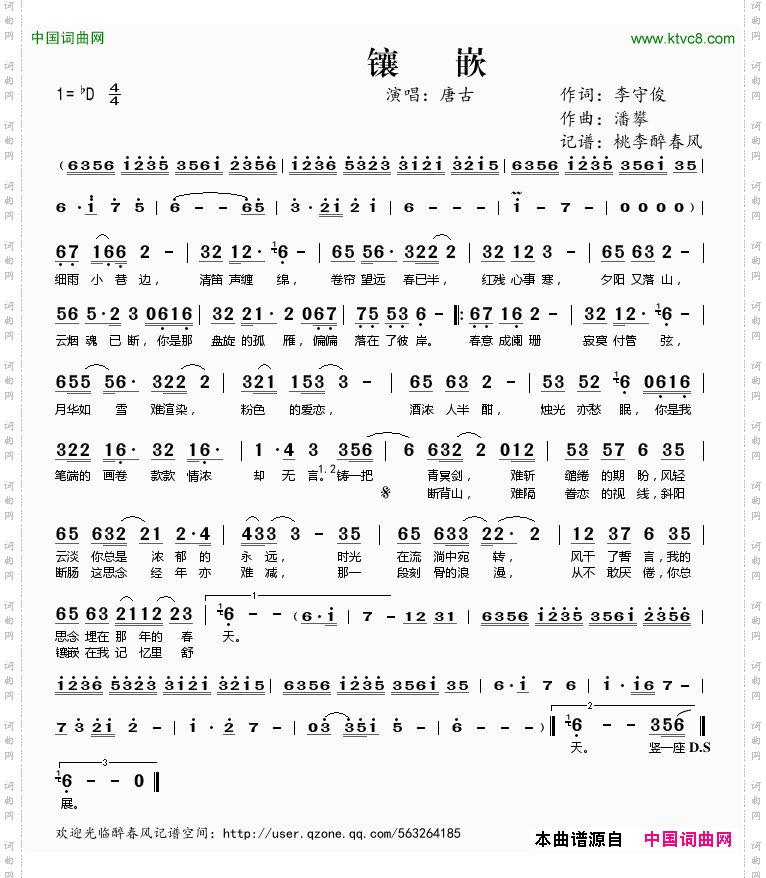 中国词曲网
www.ktvc8.com
镶 嵌
1=♭D 4/4
演唱：唐古
作词：李守俊
作曲：潘攀
记谱：桃李醉春风
（6356 1235 3561 2356 | 1236 5323 3121 3215 | 6356 1235 3561 35 |
6·1 7 5 | 6 - - 65 | 3·21 2 1 | 6 - - - | 1 - 7 - | 0 0 0 0 ）|
67 166 2 - | 32 12· 16 - | 65 56· 322 2 | 32 12 3 - | 65 63 2 - |
细雨 小 巷 边， 清笛 声缠 绵， 卷帘 望远 春已半， 红残 心事 寒， 夕阳 又落 山，
56 5·2 3 0616 | 32 21· 2 067 | 75 53 6 - ‖: 67 16 2 - | 32 12· 16 - |
云烟 魂 已 断，你是那 盘旋 的孤 雁，偏偏 落在 了彼 岸。 春意 成阑 珊 寂寞 付管 弦，
655 56· 322 2 | 321 153 3 - | 65 63 2 - | 53 52 16 0616 |
月华如 雪 难渲染， 粉色 的爱恋， 酒浓 人半 酣， 烛光 亦愁 眠，你是我
322 16· 32 16· | 1 ·4 3 356 | 6 632 2 012 | 53 57 6 35 |
笔端的 画卷 款款 情浓 却 无 言。1.2铸一把 青冥剑， 难斩 缱绻 的期 盼，风轻
𝄋 断背山， 难隔 眷恋 的视 线，斜阳
65 632 21 2·4 | 433 3 - 35 | 65 633 22· 2 | 12 37 6 35 |
云淡 你总是 浓 郁 的 永 远， 时光 在流 淌中宛 转， 风干 了誓 言，我的
断肠 这思念 经 年 亦 难 减， 那一 段刻 骨的浪 漫， 从不 敢厌 倦，你总
65 63 2112 23 | 1 16 - - （6·1 | 7 - 12 31 | 6356 1235 3561 2356 |
思念 埋在 那 年的 春 天。
镶嵌 在我 记 忆里 舒
1236 5323 3121 3215 | 6356 1235 3561 35 | 6·1 7 6 | 1·16 7 - |
7 3 21 2 - | 1·2 7 - | 03 351 5 - | 6 - - ）‖ 2 16 - - 356 ‖
天。 竖一座 D.S
3 16 - - 0 ‖
展。
欢迎光临醉春风记谱空间：http://user.qzone.qq.com/563264185
本曲谱源自 中国词曲网